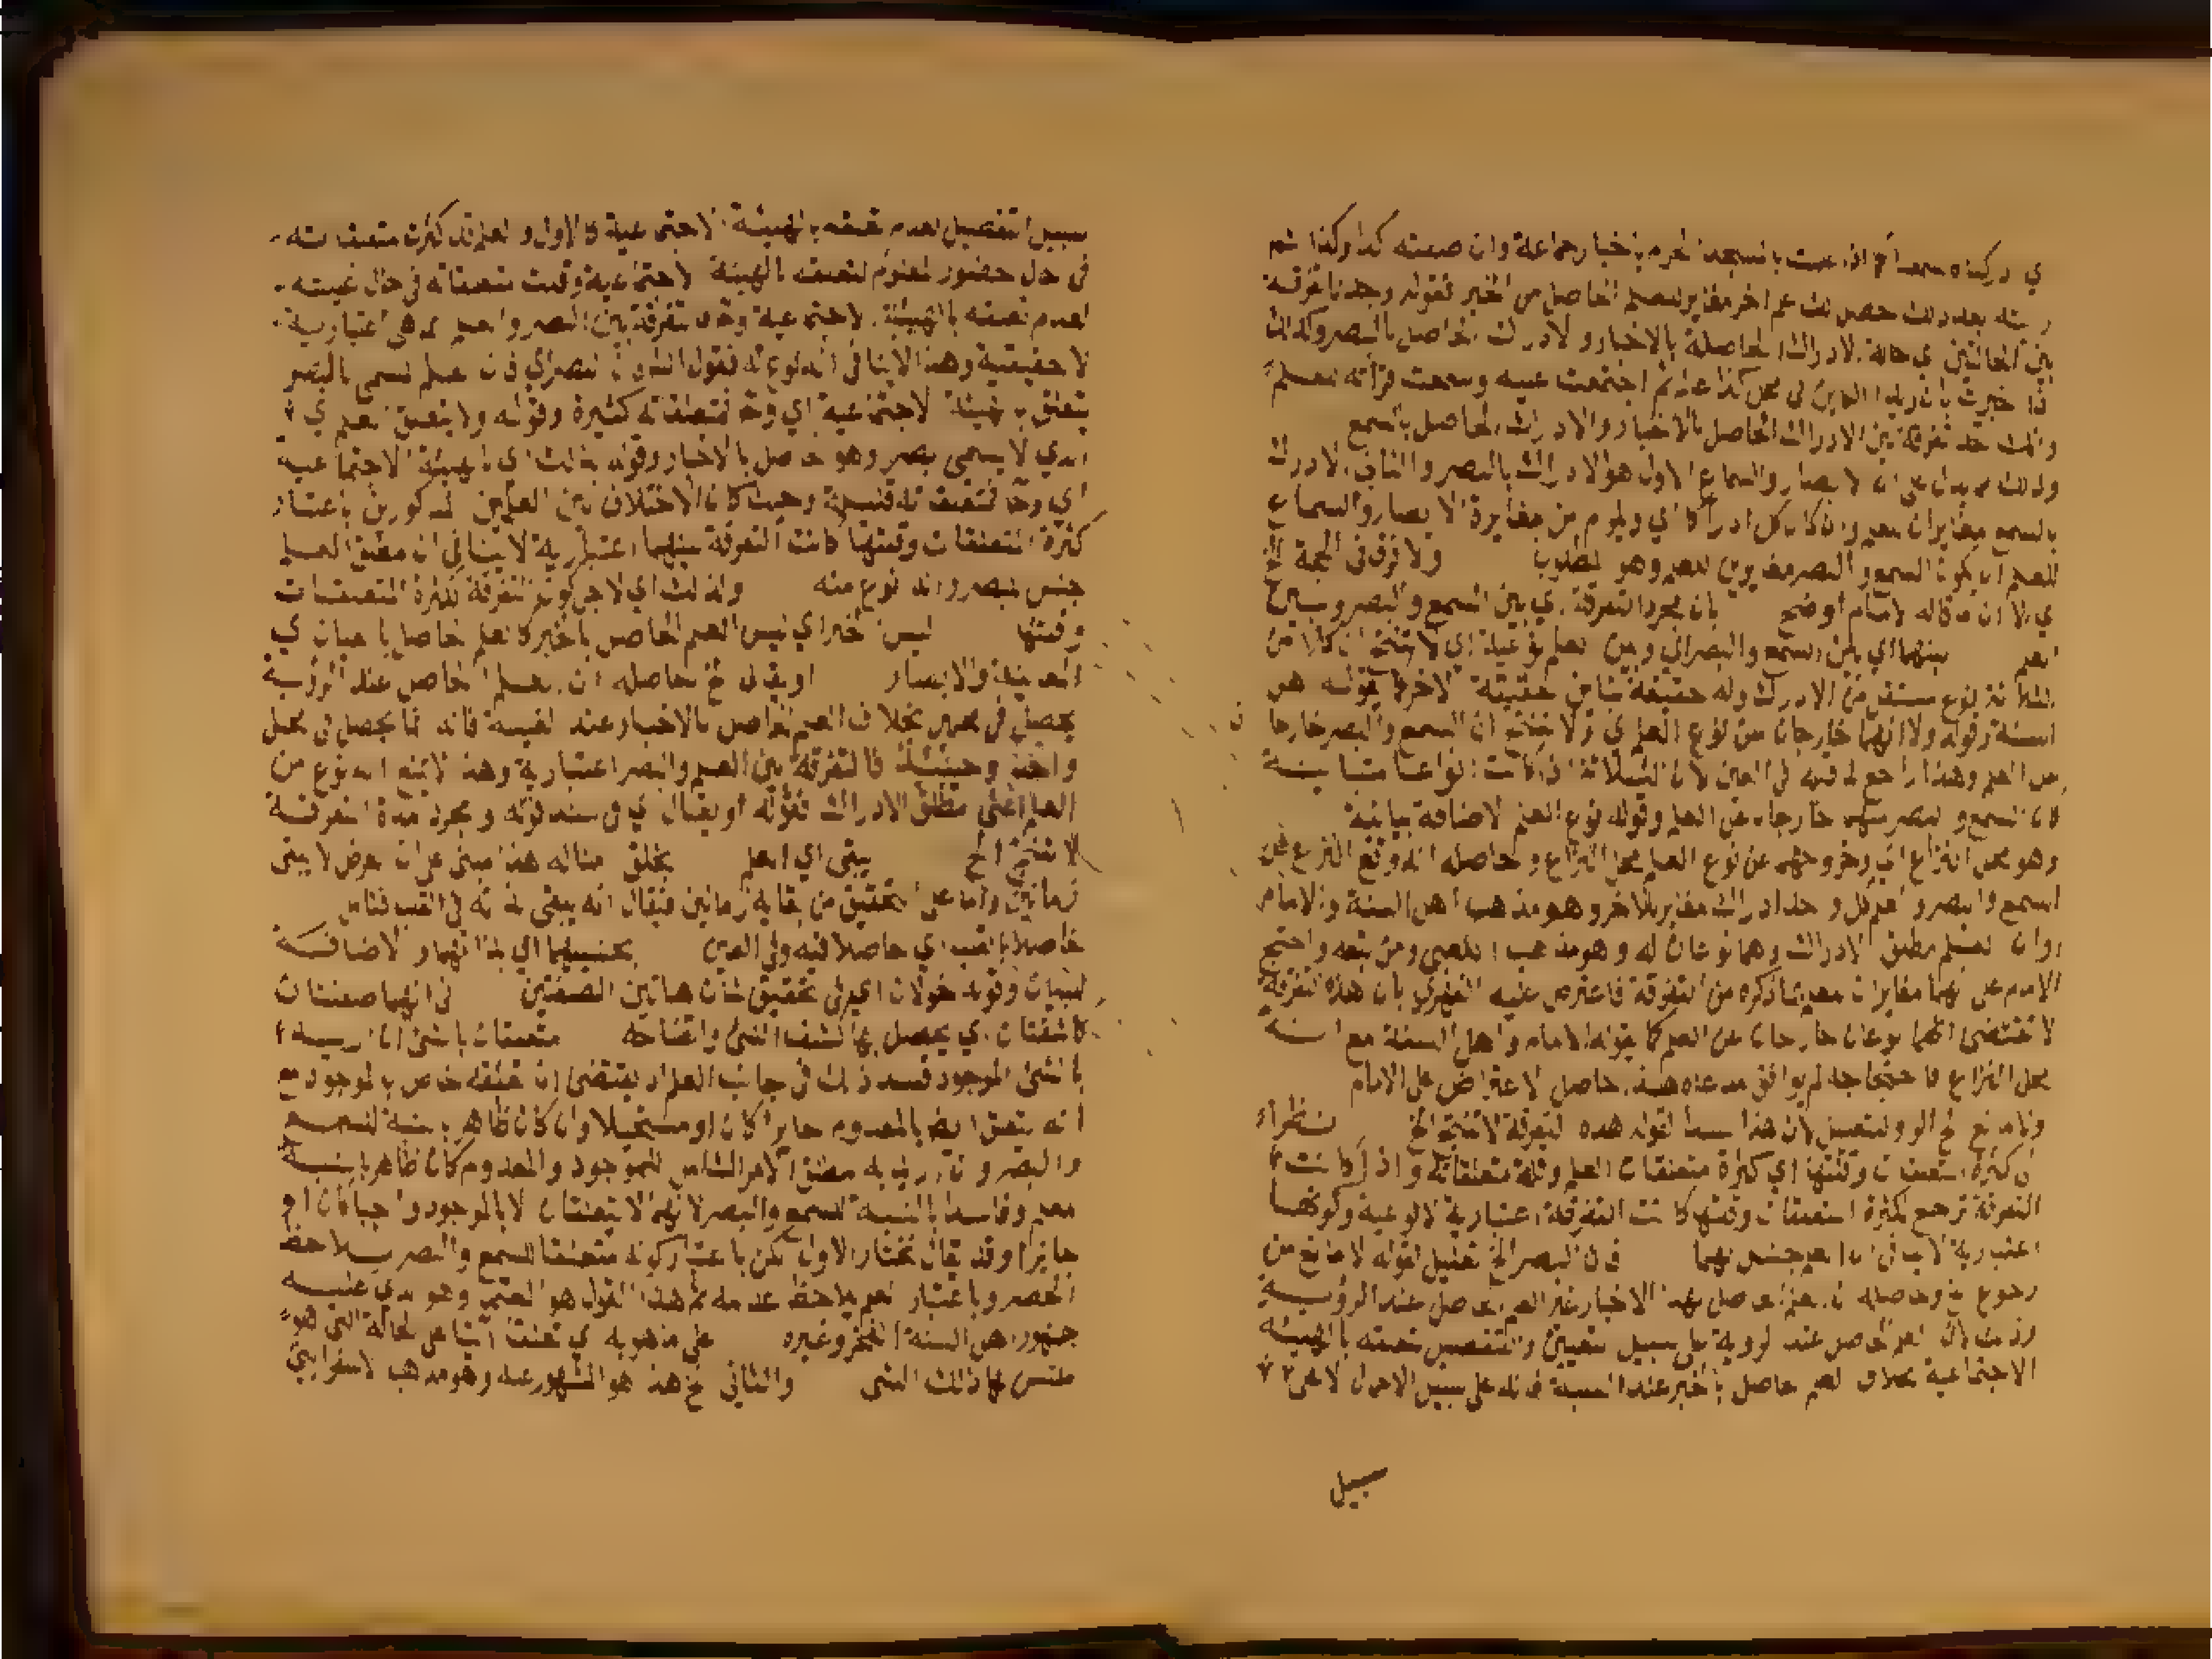 ي درکناه سمعا اذا علمت بالمسجد الحرم باخبار جماعة وان صفته كذا وكذا ثم
رايته بعد ذلك حصل لك علم اخر مغاير للعلم الحاصل من الخبر فقوله وجدنا تفرقة
بين الحالتين اي حالة الادراك الحاصلة بالاخبار والادراك الحاصل بالبصر وكذلك
اذا خبرت بان زيدا في محل كذا ثم اجتمعت عليه وسمعت قرأته تعلم
وانك تجد تفرقة بين الادراك الحاصل بالاخبار والادراك الحاصل بالسمع
وذلك يدل على ان الابصار والسماع الاول هو الادراك بالبصر والثاني الادراك
بالسمع مغايران للعلم وان كان كل ادراكا اي ويلزم من مغايرة الابصار والسماع
للعلم ان يكون السمع والبصر مغايرين للعلم وهو المطلوب ولا فرق في الجهة
اي الا ان ما قاله الامام اوضح بان مجرد التفرقة اي بين السمع والبصر وبين
العلم بينهما اي بين السمع والبصر وبين العلم نوعية اي لا تنتج ان كلا من
الثلاثة نوع مستقل من الادراك وله حقيقة تباين حقيقة الاخر كما يقوله اهل
السنة وقوله ولا انهما خارجان عن نوع العلم اي ولا تنتج ان السمع والبصر خارجان
عن العلم وهذا راجع لما قبله في المعنى لان الثلاثة اذا كانت انواعا متباينة
كان السمع والبصر منهما خارجان عن العلم وقوله نوع العلم الاضافة بيانية
وهو محل النزاع اي وخروجهما عن نوع العلم محل النزاع وحاصله انه وقع النزاع في
السمع والبصر والعلم كل واحد ادراك مغاير للاخر وهو مذهب اهل السنة والامام
وان العلم مطلق الادراك وهما نوعان له وهو مذهب الكعبي ومن تبعه واحتج
الامام على انهما مغايران للعلم بما ذكره من التفرقة فاعترض عليه الفهري بان هذه التفرقة
لا تقتضي انهما نوعان خارجان عن العلم كما يقوله الامام واهل السنة مع انه
محل النزاع فاحتجاجه لم يوافق مدعاه هذا حاصل الاعتراض على الامام
ولا مانع الخ الواو للتعليل لان هذا سند لقوله هذه التفرقة لا تنتج الخ نظرا
الى كثرة المتعلقات وقلتها اي كثرة متعلقات العلم وقلة متعلقاته واذا كانت
التفرقة ترجع لكثرة المتعلقات وقلتها كانت التفرقة اعتبارية لا نوعية وكونها
اعتبارية لا ينافي ان العلم جنس لهما فان البصر الخ تعليل لقوله لا مانع من
رجوع الخ وحاصله ان العلم الحاصل بهذا الاخبار غير العلم الحاصل عند الرؤية
وذلك لان العلم الحاصل عند الروية على سبيل التعيين والتفصيل لتعلقه بالهيئة
الاجتماعية بخلاف العلم الحاصل بالخبر عند الغيبة فانه على سبيل الاجمال لا على
سبيل
سبيل التفصيل لعدم تعلقه بالهيئة الاجتماعية كالاول والعلم قد كثرت متعلقاته
في حال حضور المعلوم لتعلقه بالهيئة الاجتماعية وقلت متعلقاته في حال غيبته
لعدم تعلقه بالهيئة الاجتماعية وحق التفرقة بين البصر والعلم انما هي اعتبارية
لا حقيقية وهذا لا ينافي انه نوع له فقول الشارح فان البصر اي فان علم يسمى بالبصر
يتعلق بالهيئة الاجتماعية اي وحق فتعلقاته كثيرة وقوله ولا يتعلق العلم اي
الذي لا يسمى ببصر وهو حاصل بالاخبار وقوله بذلك اي بالهيئة الاجتماعية
اي وحق فتعلقاته قليلة وحيث كان الاختلاف بين العلمين المذكورين باعتبار
كثرة المتعلقات وقلتها كانت التفرقة بينهما اعتبارية لا ينافي ان مطلق العلم
جنس للبصر وانه نوع منه ولذلك اي لاجل كون التفرقة لكثرة المتعلقات
وقلتها ليس الخبر اي ليس العلم الحاصل بالخبر كالعلم الحاصل بالعيان اي
المعاينة والابصار او يقال الخ حاصله ان العلم الحاصل عند الرؤية
يحصل في محلين بخلاف العلم الحاصل بالاخبار عند الغيبة فانه انما يحصل في محل
واحد وحينئذ فالتفرقة بين العلم والبصر اعتبارية وهذا لا يمنع انه نوع من
العلم اعني مطلق الادراك فقوله او يقال اي في سند قوله ومجرد هذه التفرقة
لا تنتج الخ يبقى اي العلم بخلق مثاله هذا مبني على ان العرض لا يبقى
زمانين واما على التحقيق من بقائه زمانين فيقال انه يبقى بذاته في القلب فتامل
حاصلا بالقلب اي حاصلا فيه وفي العين بحقيقتهما اي بذاتهما والاضافة
للبيان وقوله قولان اي في تحقيق شان هاتين الصفتين في انهما صفتان
كاشفتان اي يحصل بها كشف الشئ واتضاحه متعلقتان بالشئ ان اريد
بالشئ الموجود فسد ذلك في جانب العلم اذ يقتضي ان تعلقه خاص بالموجود مع
انه يتعلق ايضا بالمعدوم جايزا كان او مستحيلا وان كان ظاهرا بالنسبة للسمع
والبصر وان اريد به مطلق الامر الشامل للموجود والمعدوم كان ظاهرا بالنسبة
للعلم وفاسدا بالنسبة للسمع والبصر لانهما لا يتعلقان الا بالموجود واجبا كان او
جايزا وقد يقال نختار الاول لكن باعتبار كونه متعلقا للسمع والبصر يلاحظ
الحصر وباعتبار العلم يلاحظ عدمه ثم هذا القول هو المعتمد وهو الذي عليه
جمهور اهل السنة الفخر وغيره على ما هو به اي تعلقا آتيا على الحالة التي هو
ملتبس بها ذلك الشئ والثاني الخ هذا هو المشهور عنه وهو مذهب الاسفرايني